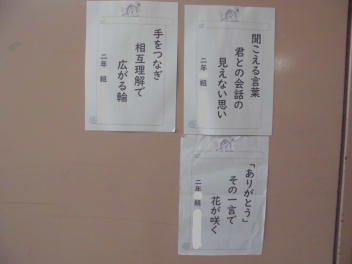 聞こえる言葉
君との会話の
見えない思い
二年　組
手をつなぎ
相互理解で
広がる輪
二年　組
「ありがとう」
その一言で
花が咲く
二年　組